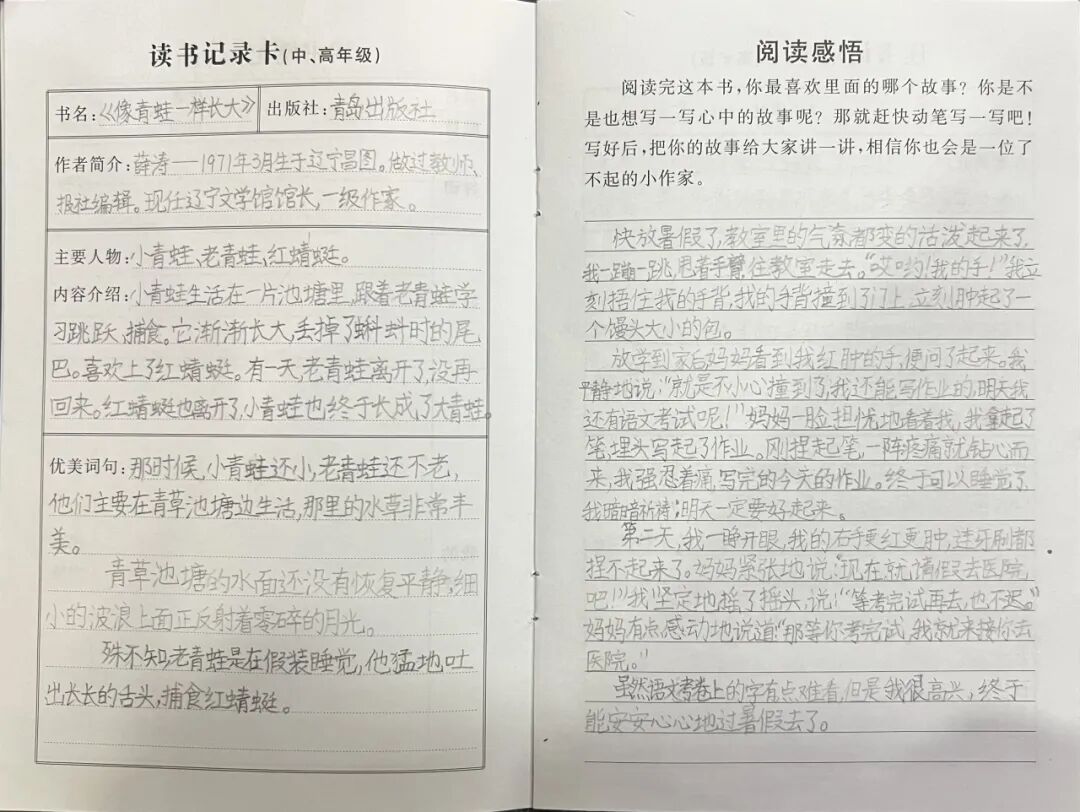 读书记录卡(中、高年级)
书名:《像青蛙一样长大》 出版社:青岛出版社
作者简介:薛涛——1971年3月生于辽宁昌图。做过教师、
报社编辑。现任辽宁文学馆馆长,一级作家。
主要人物:小青蛙、老青蛙、红蜻蜓。
内容介绍:小青蛙生活在一片池塘里,跟着老青蛙学
习跳跃、捕食。它渐渐长大,丢掉了蝌蚪时的尾
巴。喜欢上了红蜻蜓。有一天,老青蛙离开了,没再
回来。红蜻蜓也离开了,小青蛙也终于长成了大青蛙。
优美词句:那时候,小青蛙还小,老青蛙还不老,
他们主要在青草池塘边生活,那里的水草非常丰
美。
青草池塘的水面还没有恢复平静,细
小的波浪上面正反射着零碎的月光。
殊不知,老青蛙是在假装睡觉,他猛地吐
出长长的舌头,捕食红蜻蜓。
阅读感悟
阅读完这本书,你最喜欢里面的哪个故事?你是不
是也想写一写心中的故事呢?那就赶快动笔写一写吧!
写好后,把你的故事给大家讲一讲,相信你也会是一位了
不起的小作家。
快放暑假了,教室里的气氛都变的活泼起来了,
我一蹦一跳,甩着手臂往教室走去。“哎哟!我的手!”我立
刻捂住我的手背,我的手背撞到了门上,立刻肿起了一
个馒头大小的包。
放学到家后妈妈看到我红肿的手,便问了起来。我
平静地说:“就是不小心撞到了,我还能写作业的,明天我
还有语文考试呢!”妈妈一脸担忧地看着我,我拿起了
笔,埋头写起了作业。刚捏起笔,一阵疼痛就钻心而
来,我强忍着痛,写完的今天的作业。终于可以睡觉了,
我暗暗祈祷:明天一定要好起来。
第二天,我一睁开眼,我的右手更红更肿,连牙刷都
捏不起来了。妈妈紧张地说:“现在就请假去医院,
吧!”我坚定地摇了摇头,说:“等考完试再去,也不迟。”
妈妈有点感动地说道:“那等你考完试,我就来接你去
医院。”
虽然语文考卷上的字有点难看,但是我很高兴,终于
能安安心心地过暑假去了。